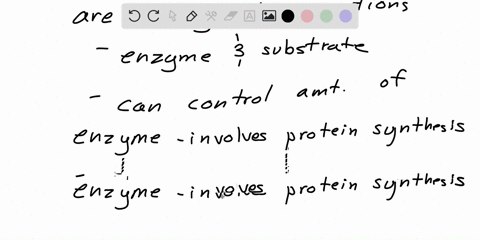 are
- enzyme & substrate
- can control amt. of
enzyme - involves protein synthesis
enzyme - involves protein synthesis